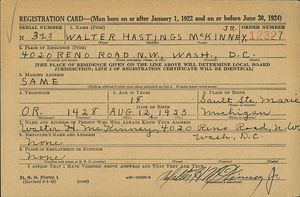 REGISTRATION CARD—(Men born on or after January 1, 1922 and on or before June 30, 1924)
SERIAL NUMBER 1. NAME (Print) JR. ORDER NUMBER
N 323 WALTER HASTINGS MCKINNEY, 12327
2. PLACE OF RESIDENCE (Print)
4020 RENO ROAD N.W., WASH., D.C.
[THE PLACE OF RESIDENCE GIVEN ON THE LINE ABOVE WILL DETERMINE LOCAL BOARD
JURISDICTION; LINE 2 OF REGISTRATION CERTIFICATE WILL BE IDENTICAL]
3. MAILING ADDRESS
SAME
4. TELEPHONE 5. AGE IN YEARS 6. PLACE OF BIRTH
18 Sault Ste. Marie
DATE OF BIRTH
OR. 1428 AUG. 12, 1923 Michigan
7. NAME AND ADDRESS OF PERSON WHO WILL ALWAYS KNOW YOUR ADDRESS
Walter H. McKinney, 4020 Reno Road, N.W.
8. EMPLOYER'S NAME AND ADDRESS Wash., D.C.
None
9. PLACE OF EMPLOYMENT OR BUSINESS
None
I AFFIRM THAT I HAVE VERIFIED ABOVE ANSWERS AND THAT THEY ARE TRUE.
D. S. S. Form 1
Walter H. McKinney Jr.